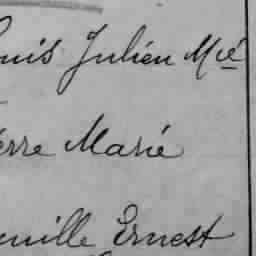 ouis Julien Mié
erre Marie
mille Ernest